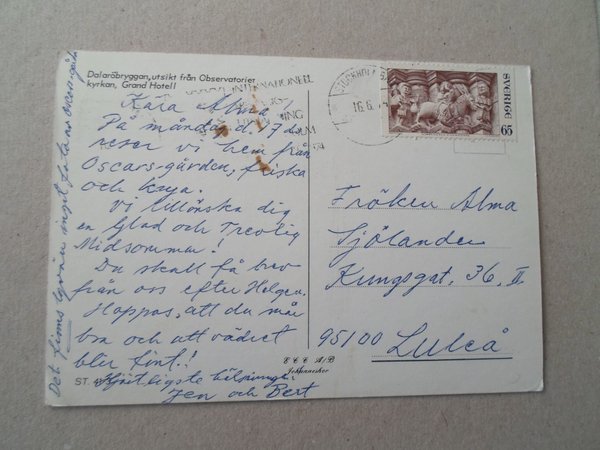 Dalaröbryggan, utsikt från Observatoriet,
kyrkan, Grand Hotell
Kära Alma!
På måndag d. 17 de
reser vi hem från
Oscars-gården, friska
och krya.
Vi tillönska dig
en Glad och Trevlig
Midsommar!
Du skall få brev
från oss efter Helgen.
Hoppas, att du mår
bra och att vädret
blir fint!
hälsningar
och Bert
Det finns
inget
ST.
ECC A/B
STOCKHOLM
16.6.
SVERIGE 65
Fröken Alma
Sjölander
Kungsgat. 36, II
95100 Luleå